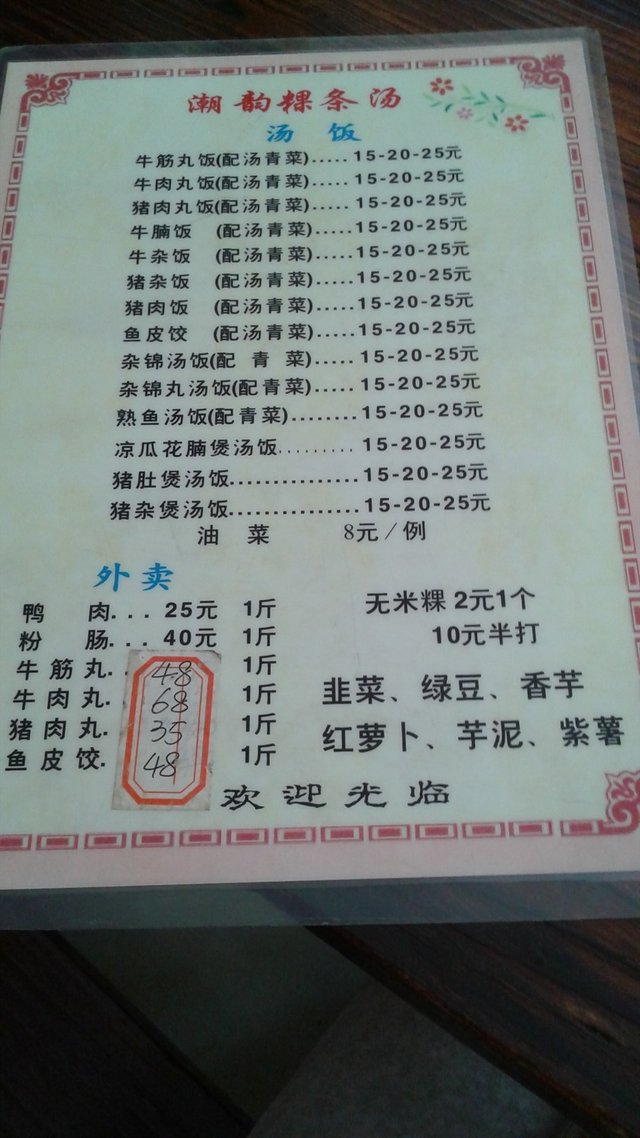 潮韵粿条汤
汤 饭
牛筋丸饭(配汤青菜).....15-20-25元
牛肉丸饭(配汤青菜).....15-20-25元
猪肉丸饭(配汤青菜).....15-20-25元
牛腩饭 (配汤青菜).....15-20-25元
牛杂饭 (配汤青菜).....15-20-25元
猪杂饭 (配汤青菜).....15-20-25元
猪肉饭 (配汤青菜).....15-20-25元
鱼皮饺 (配汤青菜).....15-20-25元
杂锦汤饭(配 青 菜).....15-20-25元
杂锦丸汤饭(配青菜).....15-20-25元
熟鱼汤饭(配青菜)........15-20-25元
凉瓜花腩煲汤饭.........15-20-25元
猪肚煲汤饭...............15-20-25元
猪杂煲汤饭...............15-20-25元
油 菜 8元/例
外卖
鸭 肉... 25元 1斤
粉 肠... 40元 1斤
牛筋丸.. 48 1斤
牛肉丸. 68 1斤
猪肉丸. 35 1斤
鱼皮饺. 48 1斤
无米粿 2元1个
10元半打
韭菜、绿豆、香芋
红萝卜、芋泥、紫薯
欢迎光临